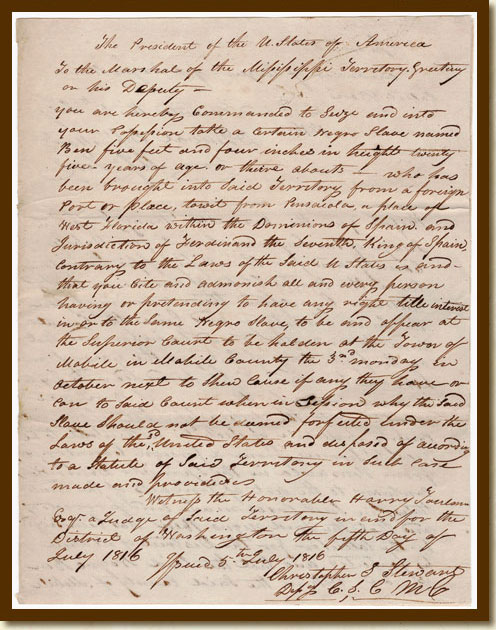 The President of the U. States of America
To the Marshal of the Missisippi Territory Greeting
or his Deputy —
you are hereby Commanded to Seize and into
your Possession take a Certain Negro Slave named
Ben five feet and four inches in height twenty
five years of age or there abouts — who has
been brought into Said Territory from a foreign
Port or place, towit from Pensacola, a place of
West Florida within the Dominions of Spain and
Jurisdiction of Ferdinand the Seventh, King of Spain,
Contrary to the Laws of the Said U States and
that you Cite and admonish all and every person
having or pretending to have any right title interest
in or to the Same Negro Slave, to be and appear at
the Superior Court to be holden at the Town of
Mobile in Mobile County the 3rd monday in
October next to Shew Cause if any they have or
can to Said Court when in Session why the Said
Slave Should not be deemed forfeited under the
Laws of the sd United States and disposed of according
to a Statute of Said Territory in Such Case
made and provided
Witness the Honorable Harry Toulmin
Esqr a Judge of Said Territory in and for the
District of Washington the fifth Day of
July 1816
Issued 5th July 1816
Christopher S Stewart
C. S. C M C